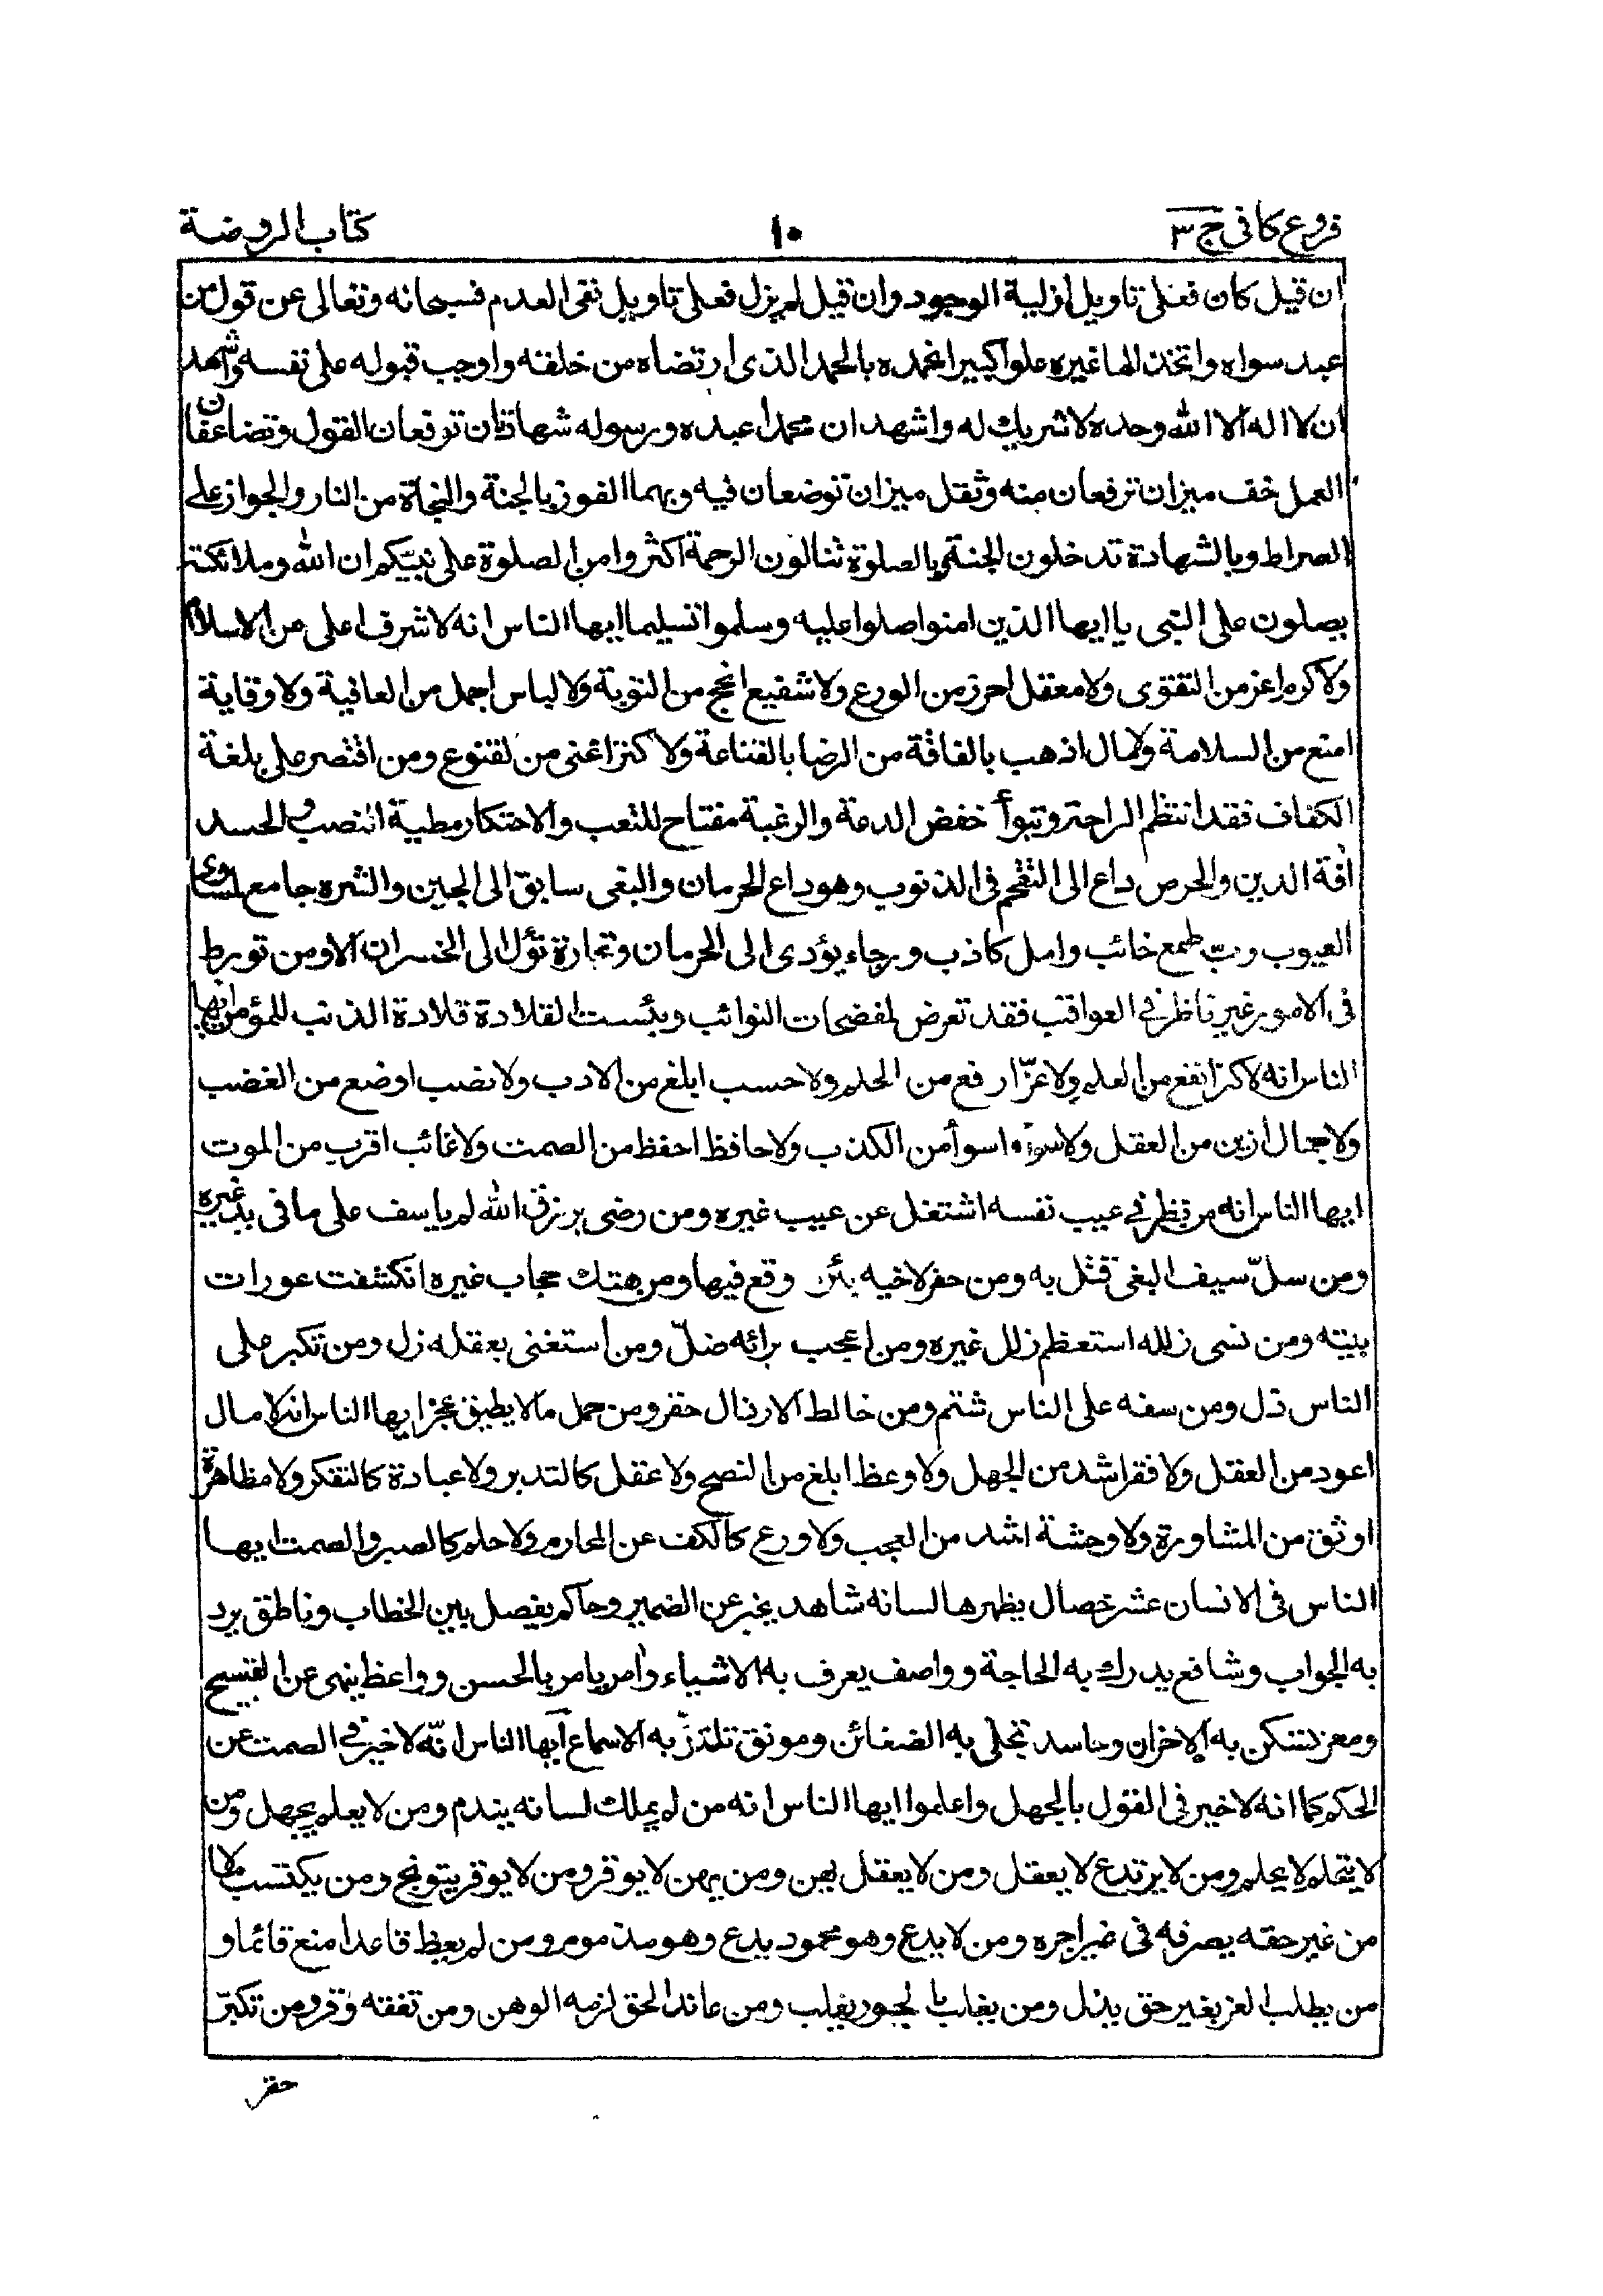 فروع كافى ج ٣
١٠
كتاب الروضة
ان قيل كان فعلى تاويل ازلية الوجود وان قيل لم يزل فعلى تاويل نفى العدم فسبحانه وتعالى عن قول من
عبد سواه واتخذ الها غيره علوا كبيرا نحمده بالحمد الذى ارتضاه من خلقه واوجب قبوله على نفسه واشهد
ان لا اله الا الله وحده لا شريك له واشهد ان محمدا عبده ورسوله شهادتان ترفعان القول وتضاعفان
العمل خف ميزان ترفعان منه وثقل ميزان توضعان فيه وبهما الفوز بالجنة والنجاة من النار والجواز على
الصراط وبالشهادة تدخلون الجنة وبالصلوة تنالون الرحمة اكثروا من الصلوة على نبيّكم ان الله وملائكته
يصلون على النبى يا ايها الذين امنوا صلوا عليه وسلموا تسليما ايها الناس انه لا شرف اعلى من الاسلام
ولا كرم اعز من التقوى ولا معقل احرز من الورع ولا شفيع انجح من التوبة ولا لباس اجمل من العافية ولا وقاية
امنع من السلامة ولا مال اذهب بالفاقة من الرضا بالقناعة ولا كنز اغنى من القنوع ومن اقتصر على بلغة
الكفاف فقد انتظم الراحة وتبوأ خفض الدعة والرغبة مفتاح للتعب والاحتكار مطية النصب والحسد
افة الدين والحرص داع الى التقحم فى الذنوب وهو داع الحرمان والبغى سابق الى الحين والشره جامع لمساوى
العيوب ربّ طمع خائب وامل كاذب ورجاء يؤدى الى الحرمان وتجارة تؤل الى الخسران الا ومن تورط
فى الامور غير ناظر فى العواقب فقد تعرض لمفضحات النوائب وبئست القلادة قلادة الذنب للمؤمن ايها
الناس انه لا كنز انفع من العلم ولا عزّ ارفع من الحلم ولا حسب ابلغ من الادب ولا نصب اوضع من الغضب
ولا جمال ازين من العقل ولا سوأة اسوأ من الكذب ولا حافظ احفظ من الصمت ولا غائب اقرب من الموت
ايها الناس انه من نظر فى عيب نفسه اشتغل عن عيب غيره ومن رضى برزق الله لم ياسف على ما فى يد غيره
ومن سلّ سيف البغى قتل به ومن حفر لاخيه بئرا وقع فيها ومن هتك حجاب غيره انكشفت عورات
بيته ومن نسى زلله استعظم زلل غيره ومن اعجب برائه ضلّ ومن استغنى بعقله زل ومن تكبر على
الناس ذل ومن سفه على الناس شتم ومن خالط الارذال حقر ومن حمل ما لا يطيق عجز ايها الناس انه لا مال
اعود من العقل ولا فقر اشد من الجهل ولا وعظ ابلغ من النصح ولا عقل كالتدبر ولا عبادة كالتفكر ولا مظاهرة
اوثق من المشاورة ولا وحشة اشد من العجب ولا ورع كالكف عن المحارم ولا حلم كالصبر والصمت ايها
الناس فى الانسان عشر خصال يظهرها لسانه شاهد يخبر عن الضمير وحاكم يفصل بين الخطاب وناطق يرد
به الجواب وشافع يدرك به الحاجة وواصف يعرف به الاشياء وامر يامر بالحسن وواعظ ينهى عن القبيح
ومعز تسكن به الاحزان وحاسد تجلى به الضغائن ومونق تلتذّ به الاسماع ايها الناس انّه لا خير فى الصمت عن
الحكم كما انه لا خير فى القول بالجهل واعلموا ايها الناس انه من لم يملك لسانه يندم ومن لا يعلم يجهل ومن
لا يتحلم لا يحلم ومن لا يرتدع لا يعقل ومن لا يعقل يهن ومن يهن لا يوقر ومن لا يوقر يتوبخ ومن يكتسب مالا
من غير حقه يصرفه فى غير اجره ومن لا يدع وهو محمود يدع وهو مذموم ومن لم يعط قاعدا منع قائما و
من يطلب العز بغير حق يذل ومن يغلب بالجور يغلب ومن عاند الحق لزمه الوهن ومن تفقه وقر ومن تكبّر
حقر